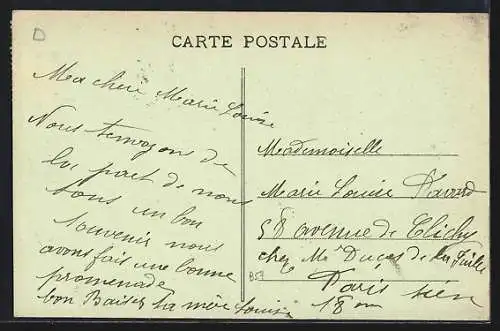 D
CARTE POSTALE
Ma cheri Marie Louise
Nous temoyons de
la part de nous
tous un bon
souvenir nous
avons fait une bonne
promenade
bon Baiser ta mère Louise
Mademoiselle
Marie Louise
58 avenue de Clichy
chez Mr Dugas de
Paris
18em
B57